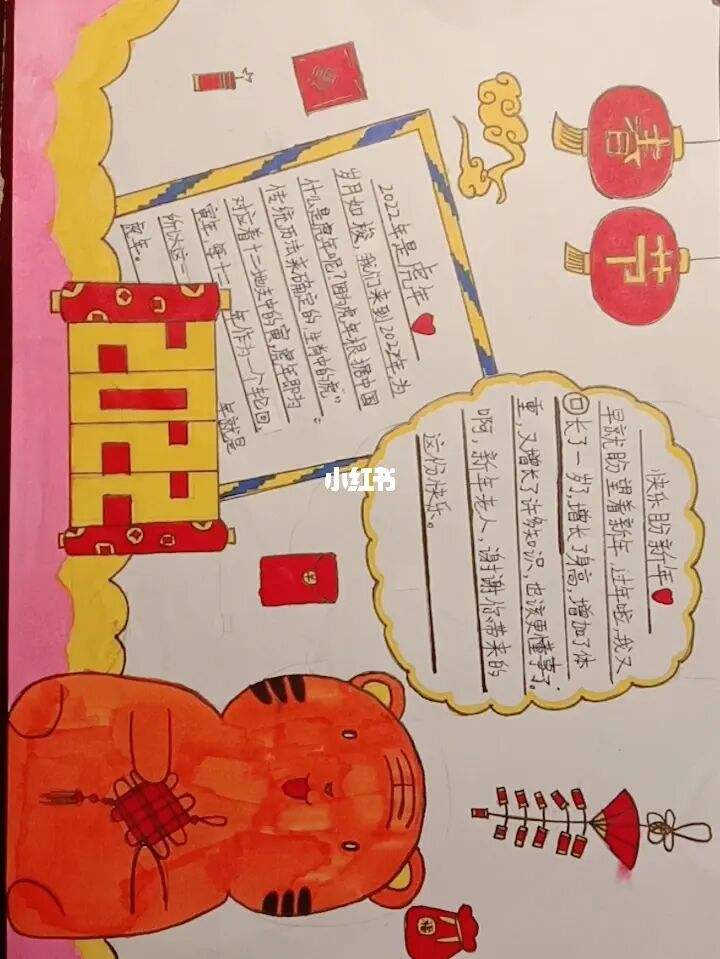 春节
2022年是虎年
岁月如梭,我们来到2022年为
什么是虎年呢?因为虎年根据中国
传统历法来确定的,生肖中的"虎"
对应着十二地支中的寅,虎年即为
寅年,每十二年作为一个轮回
所以这一年就是
虎年。
2022
快乐的新年
早就盼望着新年,过年啦,我又
长了一岁,增长了身高,增加了体
重,又增长了许多知识,也该更懂事了。
啊,新年老人,谢谢你带来的
这份快乐。
小红书
福